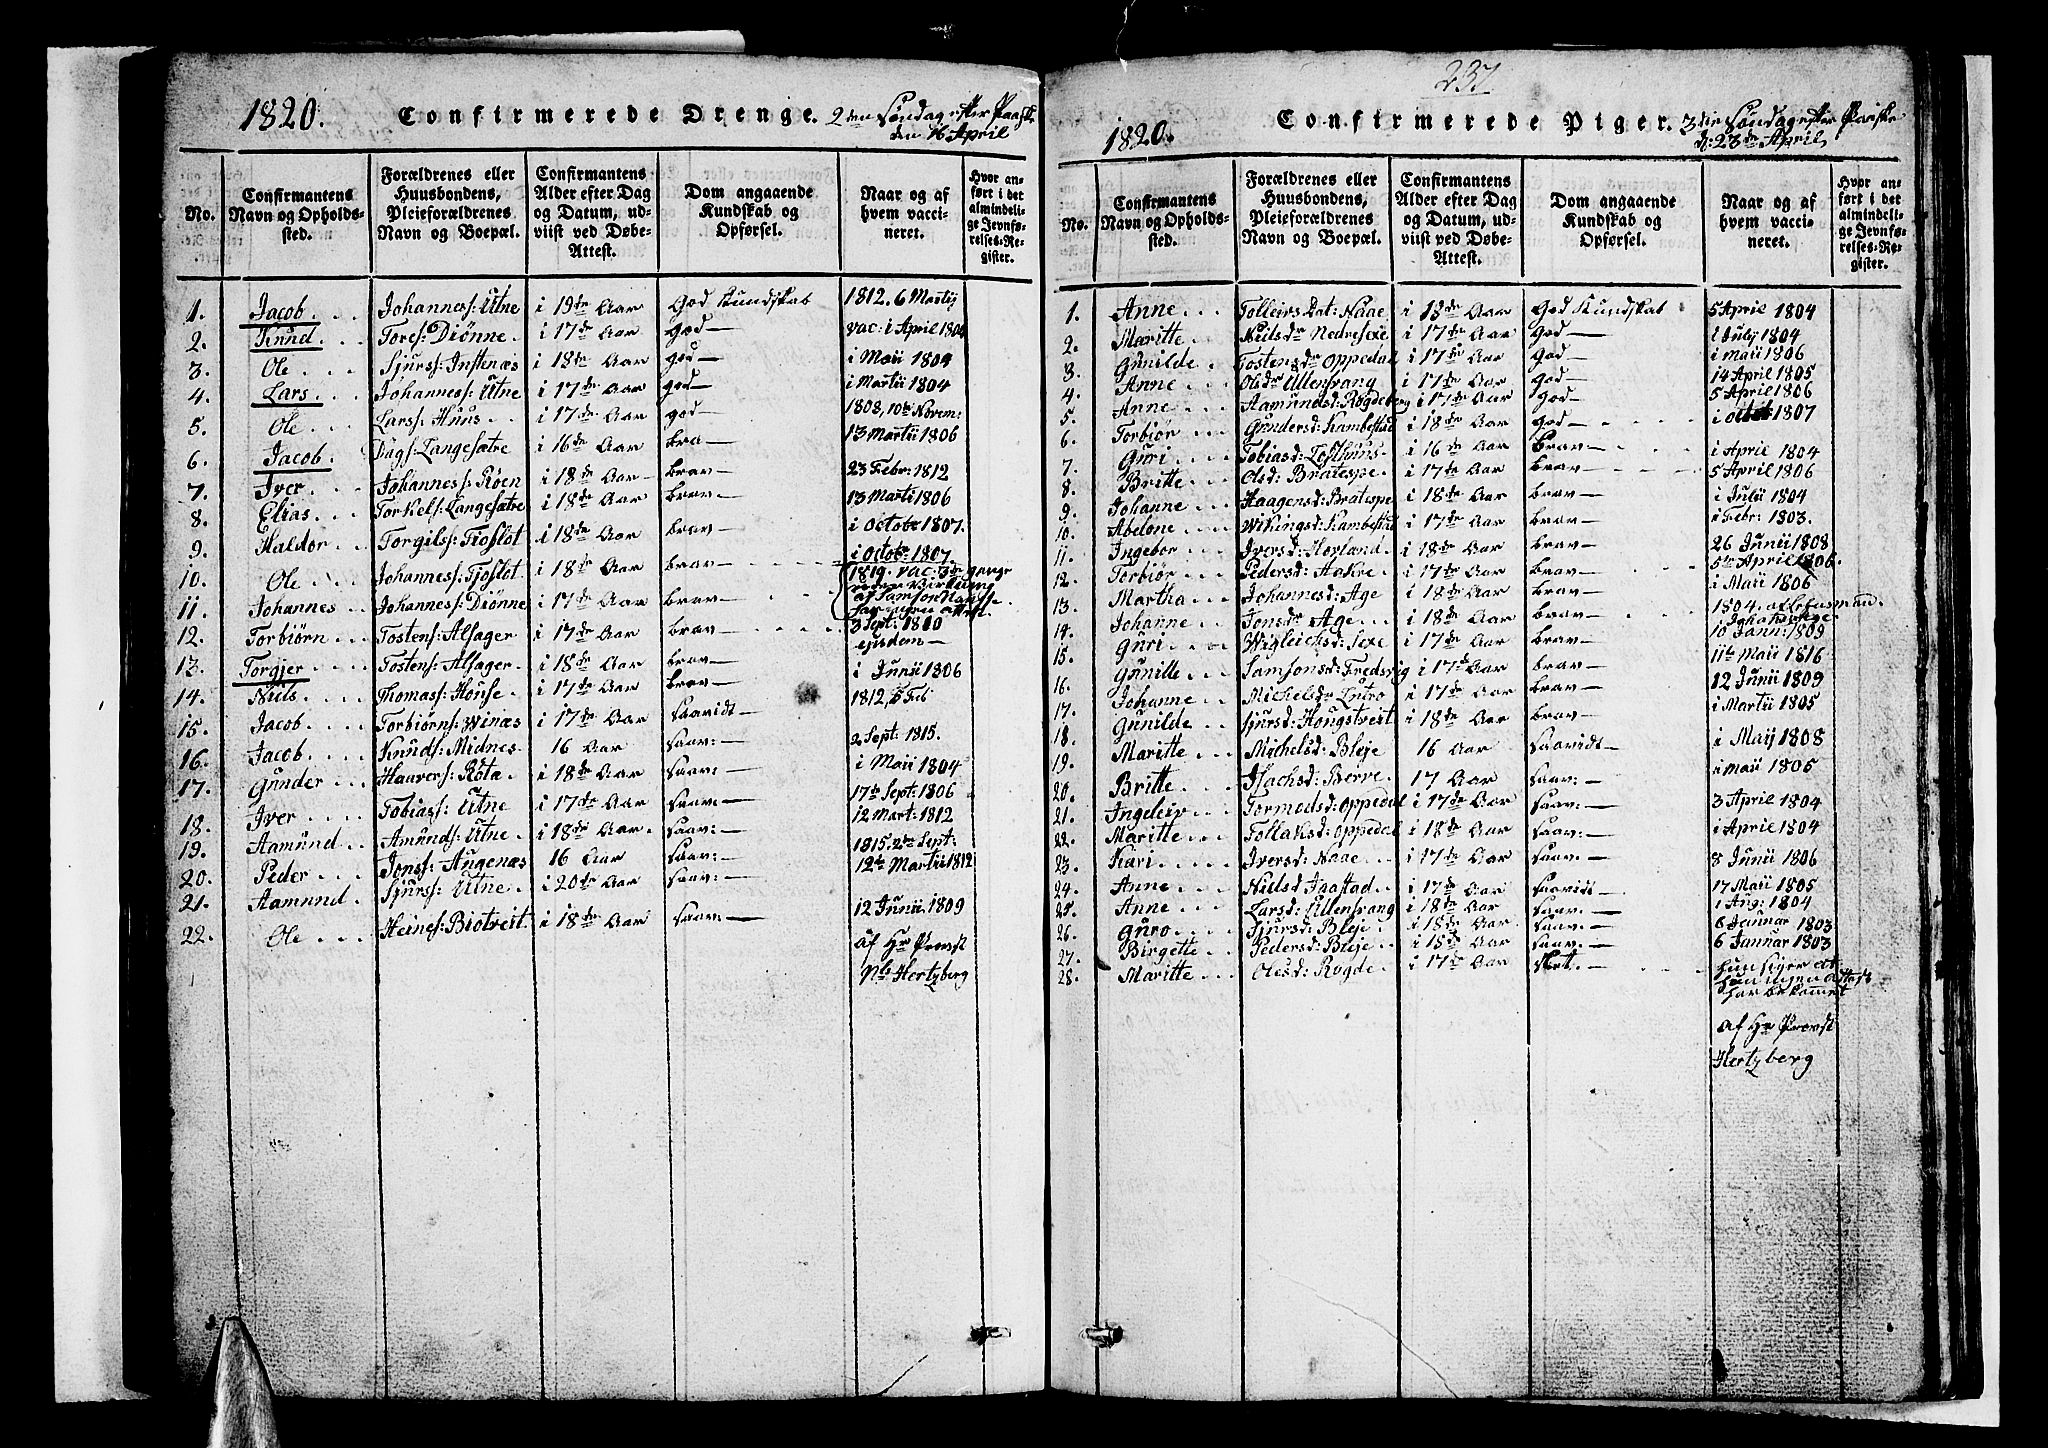 1820. Confirmerede Drenge. 2den Søndag efter Paaske
den 16 April
No.
Confirmantens Navn og Opholds-sted.
Forældrenes eller Huusbondens, Pleieforældrenes Navn og Boepæl.
Confirmantens Alder efter Dag og Datum, ud-viist ved Døbe-Attest.
Dom angaaende Kundskab og Opførsel.
Naar og af hvem vacci-neret.
Hvor an-ført i det almindeli-ge Jevnfø-relses-Re-gister.
1. Jacob Johanness: Utne i 19de Aar God Kundskab 1812. 6 Martij
2. Knud Tores: Diønne i 17de Aar god vac: i April 1804
3. Ole Sjurs: Instenæs i 18de Aar god i Maii 1804
4. Lars Johanness: Utne i 17de Aar god i Martii 1804
5. Ole Larss: Huus i 17de Aar god 1808, 10de Novem:
6. Jacob Dags: Langesætre i 16de Aar bra 13 Martii 1806
7. Iver Johannes: Røen i 18de Aar brav 23 Febr: 1812
8. Elias Torkels: Langesætre i 18de Aar brav 13 Marti 1806
9. Haldor Torgils: Tioflot i 18de Aar brav i Octobr 1807.
10. Ole Johannes: Tjoflot i 18de Aar brav i Octobr: 1807
11. Johannes Johannes: Diønne i 17de Aar brav 1819. vac: 3de gange
uden Virkning
af Samson
12. Torbiørn Tostens: Alsager i 17de Aar brav 3 Sept: 1810
13. Torgjer Tostens: Alsager i 18de Aar brav ejusdem
14. Niels Thomas: House i 17de Aar brav i Junii 1806
15. Jacob Torbiørns: Winæs i 17de Aar saavidt 1812, 5 Feb
16. Jacob Knuds: Midnes 16 Aar saav: 2 Sept: 1815.
17. Gunder Haavers: Rota i 18de Aar saav: i Maii 1804
18. Iver Tobias: Utne i 17de Aar saav: 17de Sept: 1806
19. Aamund Amunds: Utne i 18de Aar saav: 12 Mart: 1812
20. Peder Jons: Augenæs 16 Aar saav: 1815. 2den Sept:
21. Aamund Sjurs: Utne i 20de Aar saav: 12te Martii 1812
22. Ole Heines: Biotveit i 18de Aar saav: 12 Junii 1809
af Hr Provst
Nb: Hertzberg
237
1820. Confirmerede Piger. 3die Søndag efter Paaske
d: 23de April
No.
Confirmantens Navn og Opholds-sted.
Forældrenes eller Huusbondens, Pleieforældrenes Navn og Boepæl.
Confirmantens Alder efter Dag og Datum, ud-viist ved Døbe-Attest.
Dom angaaende Kundskab og Opførsel.
Naar og af hvem vacci-neret.
Hvor an-ført i det almindeli-ge Jevnfø-relses-Re-gister.
1. Anne Tolleirs Dat: Naae i 18de Aar God Kundskab 5 April 1804
2. Maritte Neilsdr Nedresexe i 17de Aar god i July 1804
3. Gunilde Tostensdr Oppedal i 17de Aar god i Maii 1806
4. Anne Olsdr Ullensvang i 17de Aar god 14 April 1805
5. Anne Aamundsd: Rogdeberg i 17de Aar god 5 April 1806
6. Torbiør Gundersd: Kambestad i 18de Aar god i 1807
7. Guri Tobiasd: Lofthuus i 16 de Aar brav i April 1804
8. Britte Olsd: Bratespe i 17de Aar brav 5 April 1806
9. Johanne Haagensd: Bratespe i 18de Aar brav i Julii 1804
10. Abelone Wikingsd: Kambestad i 17de Aar brav i Febr: 1803.
11. Ingebor Iversd: Horland i 18de Aar brav 26 Junii 1808
12. Torbiør Pedersd: Aakre i 17de Aar brav 5te April 1806.
13. Martha Johannesd: Age i 18de Aar brav i Maii 1806
14. Johanne Jonsdr Age i 18de Aar brav 1804. af Lensmand
15. Guri Wigleichsd: Sexe i 17de Aar brav 10 Jann: 1809
16. Gunille Samsonsd: Fredsvig i 17de Aar brav 11te Maii 1816
17. Johanne Michelsdr Lutro i 17de Aar brav 12 Junii 1809
18. Gunilde Sjursd: Hougstveit i 18de Aar brav i Martii 1805
19. Maritte Michelsd: Bleje 16 Aar saavidt i Maij 1808
20. Britte Isachsd: Berve 17 Aar saav: i Maii 1805
21. Ingeleiv Tormodsd: Oppedal i 17de Aar saav: 3 April 1804
22. Maritte Tollaksd: Oppedal i 18de Aar saav: i April 1804
23. Kari Iversd: Naae i 17de Aar saav: 8 Junii 1806
24. Anne Nielsd Jaastad i 17de Aar saavidt 17 Maii 1805
25. Anne Larsd: Ullensvang i 18de Aar saav: i Aug: 1804
26. Guro Sjursd: Bleje i 18de Aar saav: 6 Januar 1803
27. Birgette Pedersd: Bleje i 18de Aar saav: 6 Januar 1803
28. Maritte Olesd: Rogde i 17de Aar slet. hun siger at
hun ingen Attest
har bekommet
af Hr Provst
Hertzberg